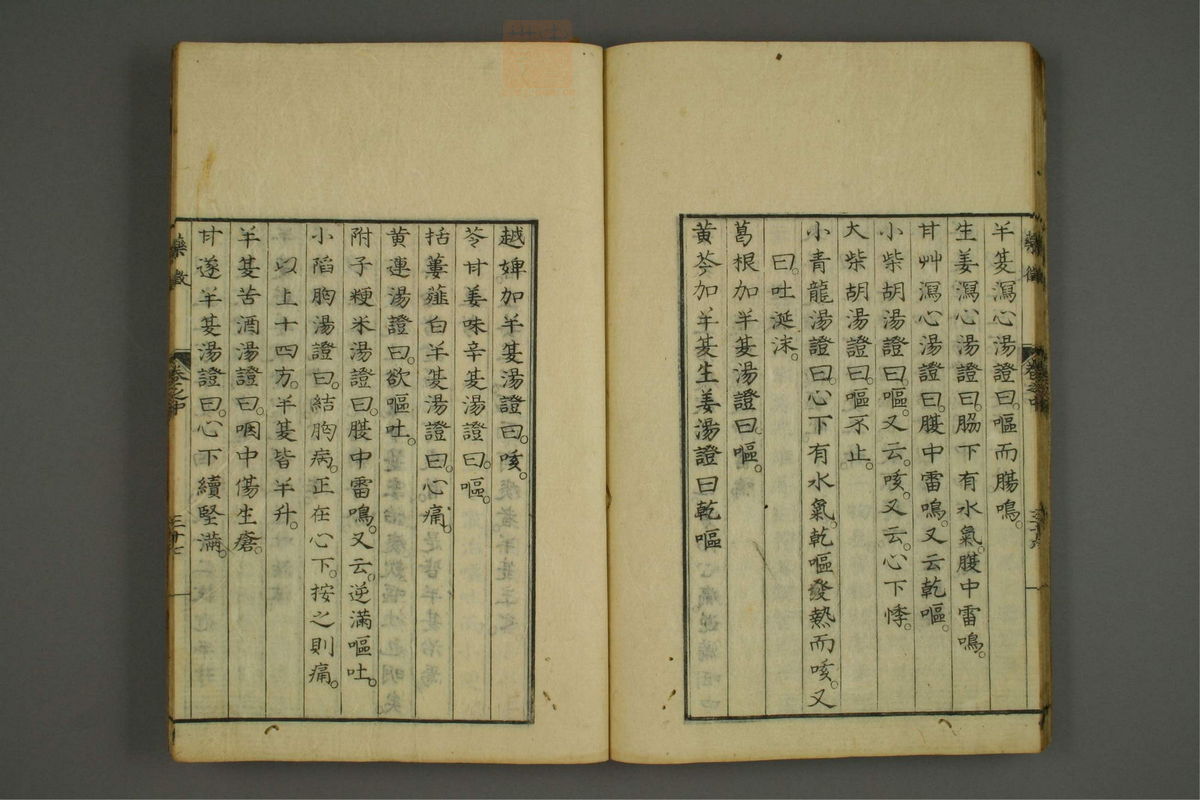 藥徵　卷之中
半夏瀉心湯證曰。嘔而腸鳴。
生姜瀉心湯證曰。脇下有水氣。腹中雷鳴。
甘艸瀉心湯證曰。腹中雷鳴。又云乾嘔。
小柴胡湯證曰。嘔。又云。咳。又云。心下悸。
大柴胡湯證曰。嘔不止。
小青龍湯證曰。心下有水氣。乾嘔發熱而咳。又
曰。吐涎沫。
葛根加半夏湯證曰。嘔。
黃芩加半夏生姜湯證曰乾嘔
越婢加半夏湯證曰。咳。
苓甘姜味辛夏湯證曰。嘔。
括蔞薤白半夏湯證曰。心痛。
黃連湯證曰。欲嘔吐。
附子粳米湯證曰。腹中雷鳴。又云。逆滿嘔吐。
小陷胸湯證曰。結胸病。正在心下。按之則痛。
半以上十四方。半夏皆半升。
半夏苦酒湯證曰。咽中傷生瘡。
甘遂半夏湯證曰。心下續堅滿。
藥徵　卷之中　三十七